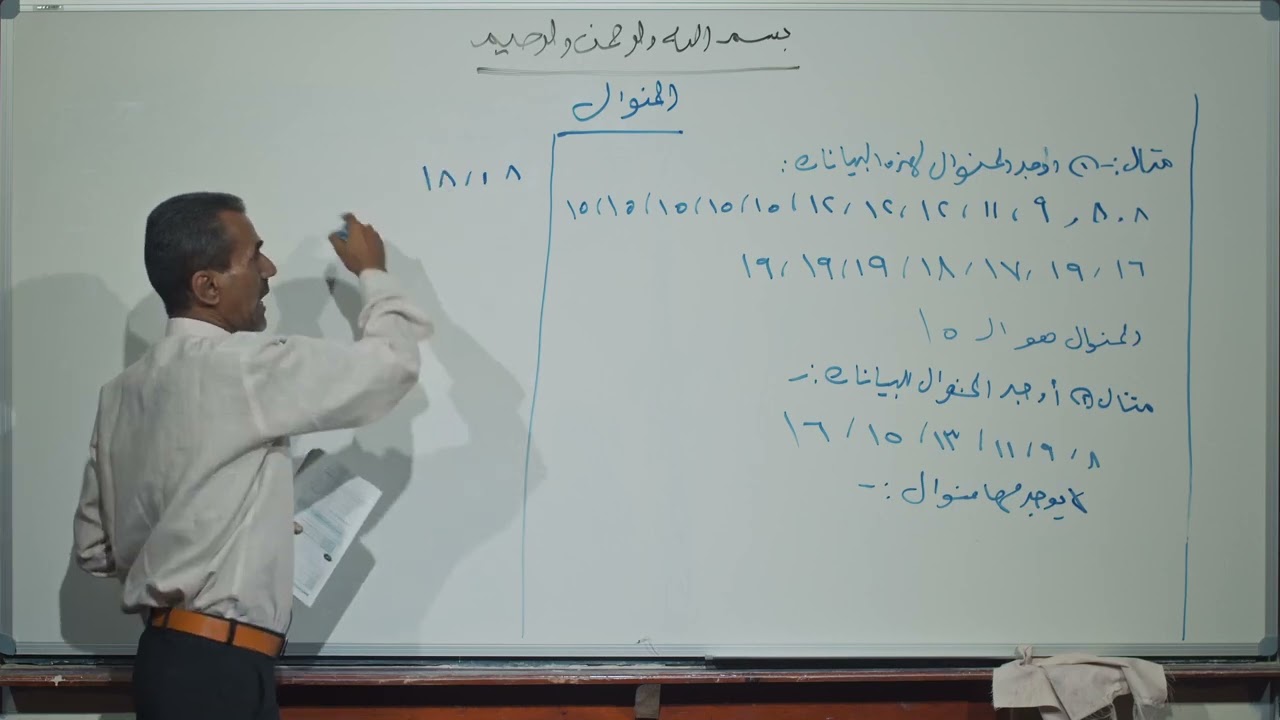 بسم الله والرحمن والرحيم
المنوال
مثال:- (١) أوجد المنوال لهذه البيانات:
٨، ٨، ٩، ١١، ١٢، ١٢، ١٢، ١٥، ١٥، ١٥، ١٥، ١٥
١٦، ١٩، ١٧، ١٨، ١٩، ١٩، ١٩
المنوال هو الـ ١٥
مثال (٢) أوجد المنوال للبيانات:-
٨، ٩، ١١، ١٣، ١٥، ١٦
لا يوجد منوال:-